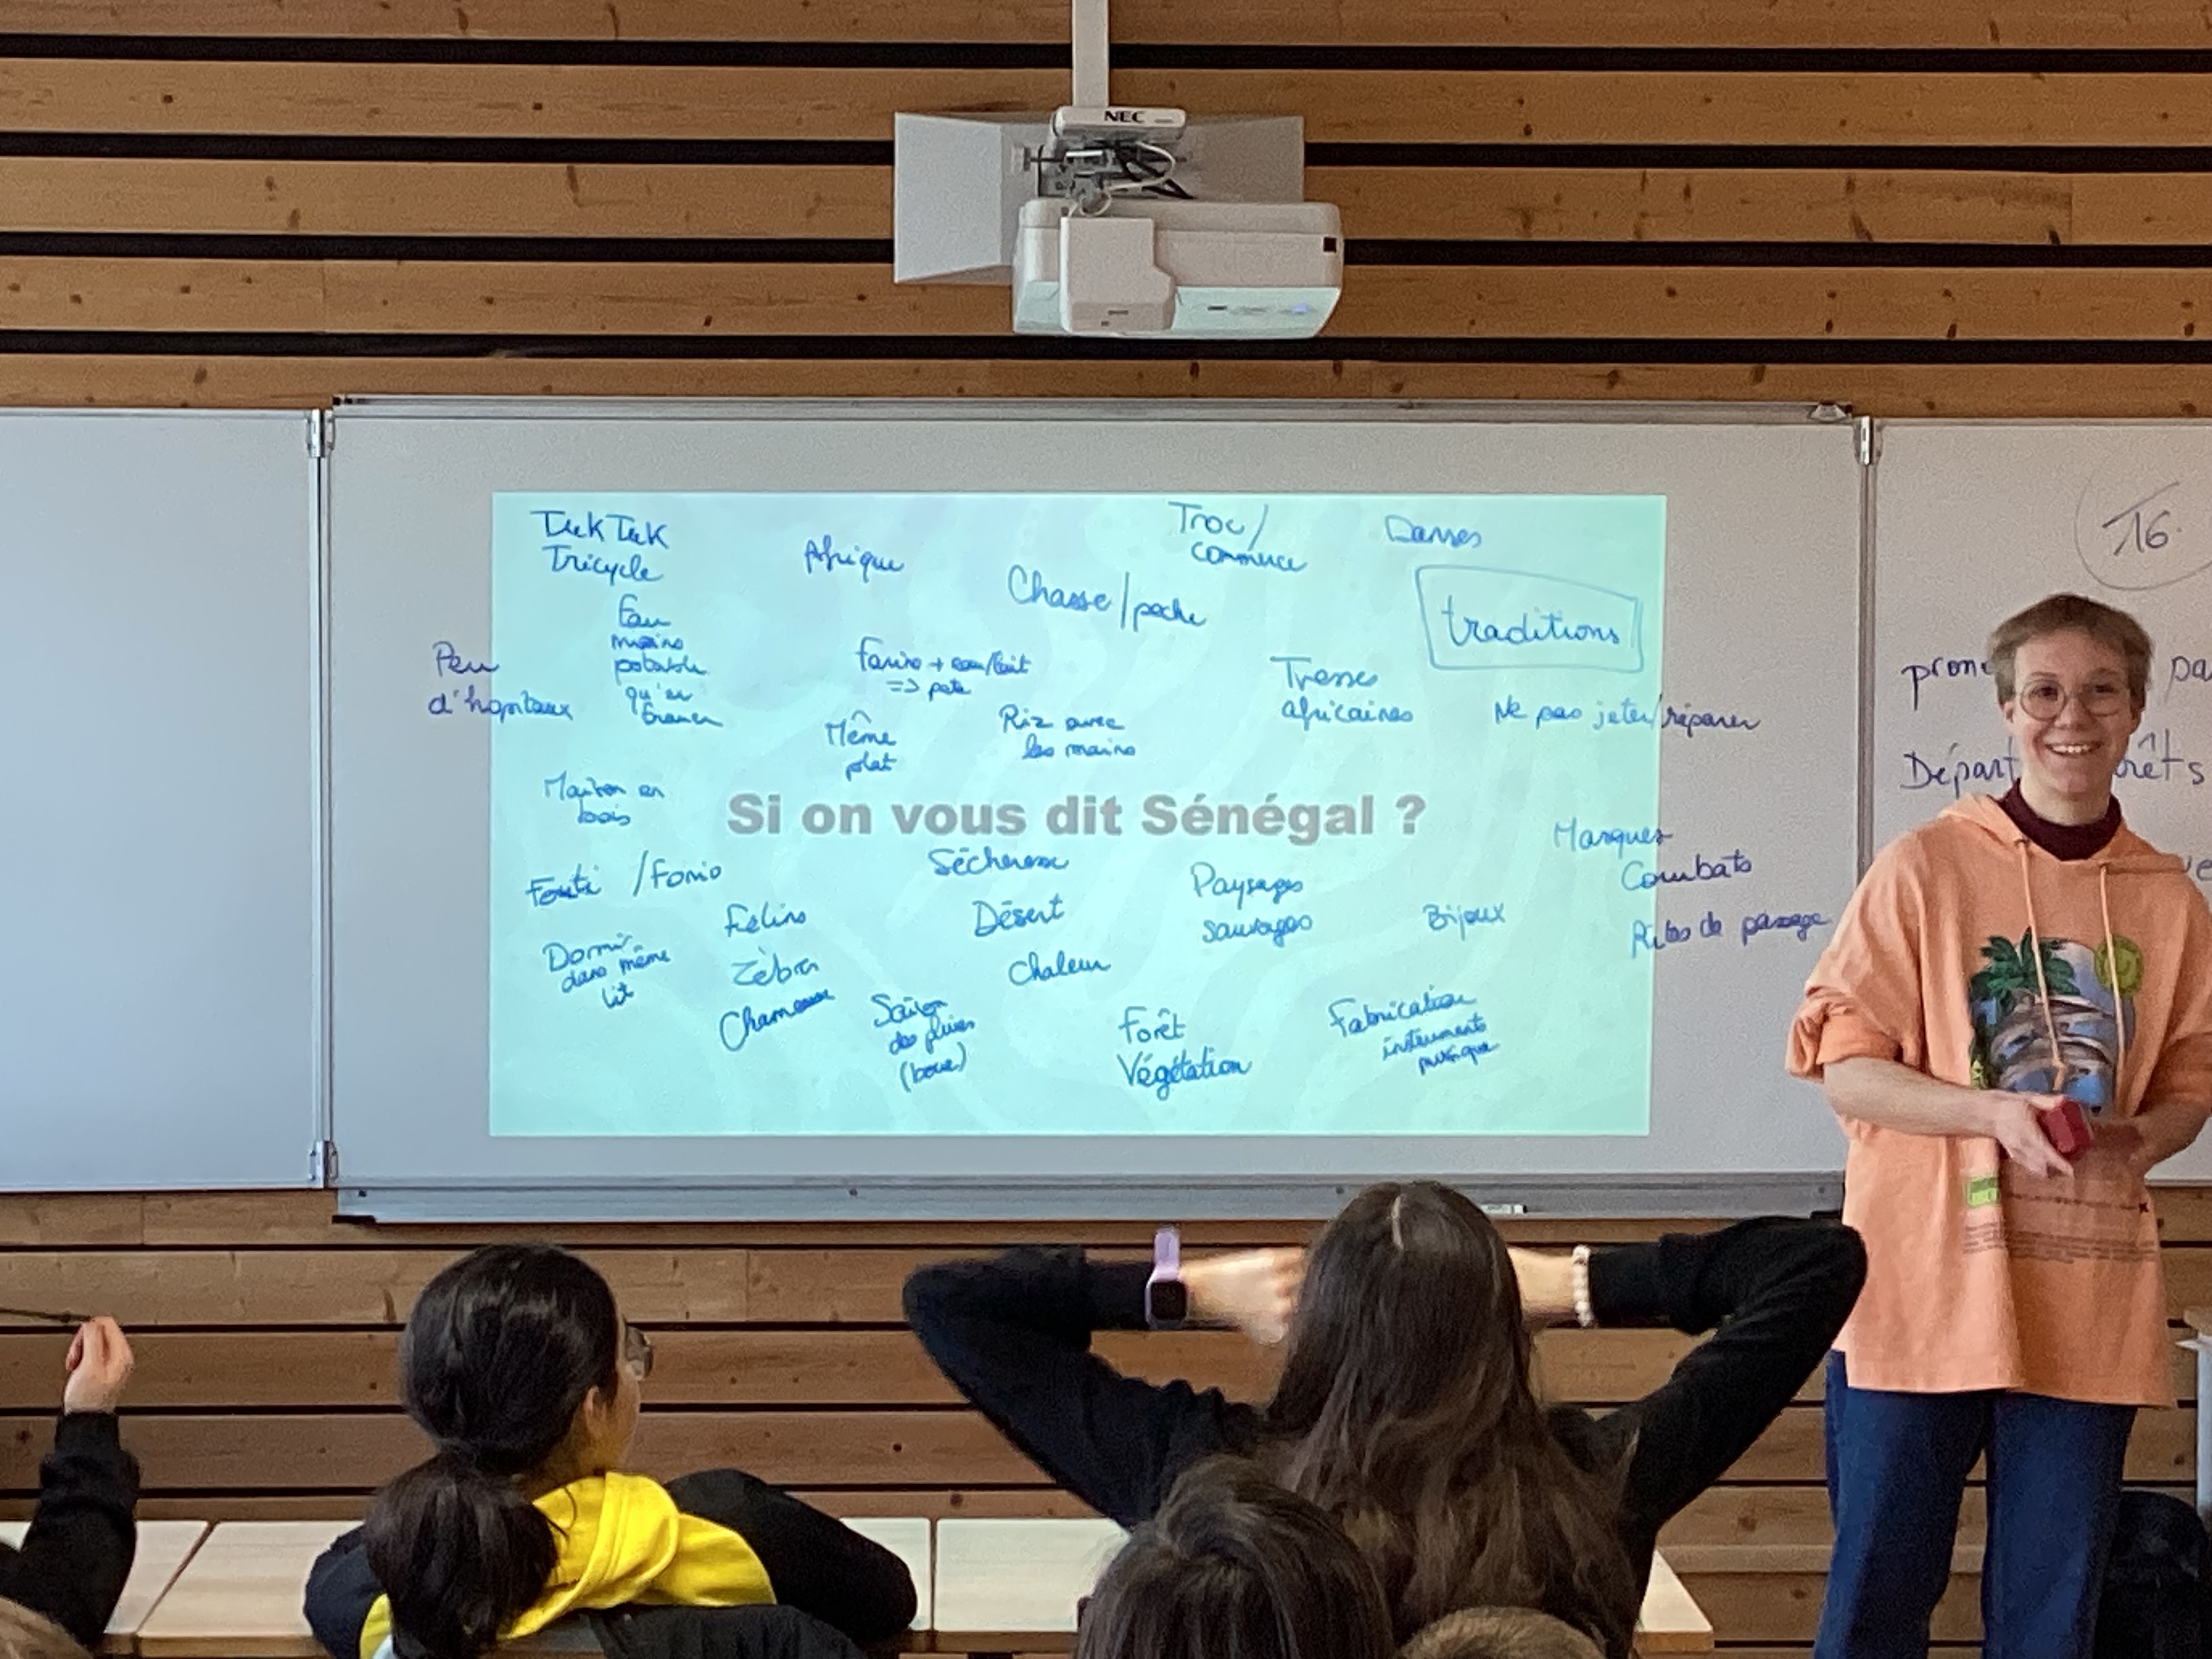 NEC
Tuk Tuk
Tricycle
Afrique
Troc /
commerce
Danses
16.
Eau
moins
potable
qu'en
France
Chasse / peche
traditions
Peu
d'hopitaux
Farine + eau/lait
=> pate
Tresses
africaines
Ne pas jeter/réparer
Même
plat
Riz avec
les mains
Maison en
bois
Si on vous dit Sénégal ?
Masques
Combats
Rites de passage
/ Fonio
Sécheresse
Paysages
sauvages
Félins
Désert
Bijoux
Dormir
dans même
lit
Zèbre
Chaleur
Chameau
Saison
des pluies
(boue)
Forêt
Végétation
Fabrication
instruments
musique
pron
pa
Départ
rêts